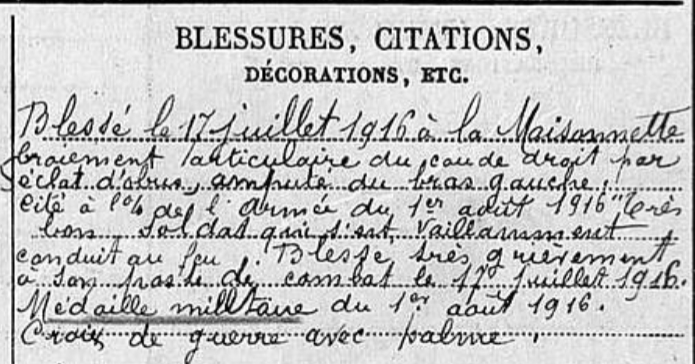 BLESSURES, CITATIONS,
DÉCORATIONS, ETC.
Blessé le 17 juillet 1916 à la Maisonnette
broiement articulaire du coude droit par
éclat d'obus, amputé du bras gauche.
Cité à l'o/ de l'armée du 1er août 1916 "très
bon soldat qui s'est vaillamment
conduit au feu. Blessé très grièvement
à son poste de combat le 17 juillet 1916.
Médaille militaire du 1er août 1916.
Croix de guerre avec palme.